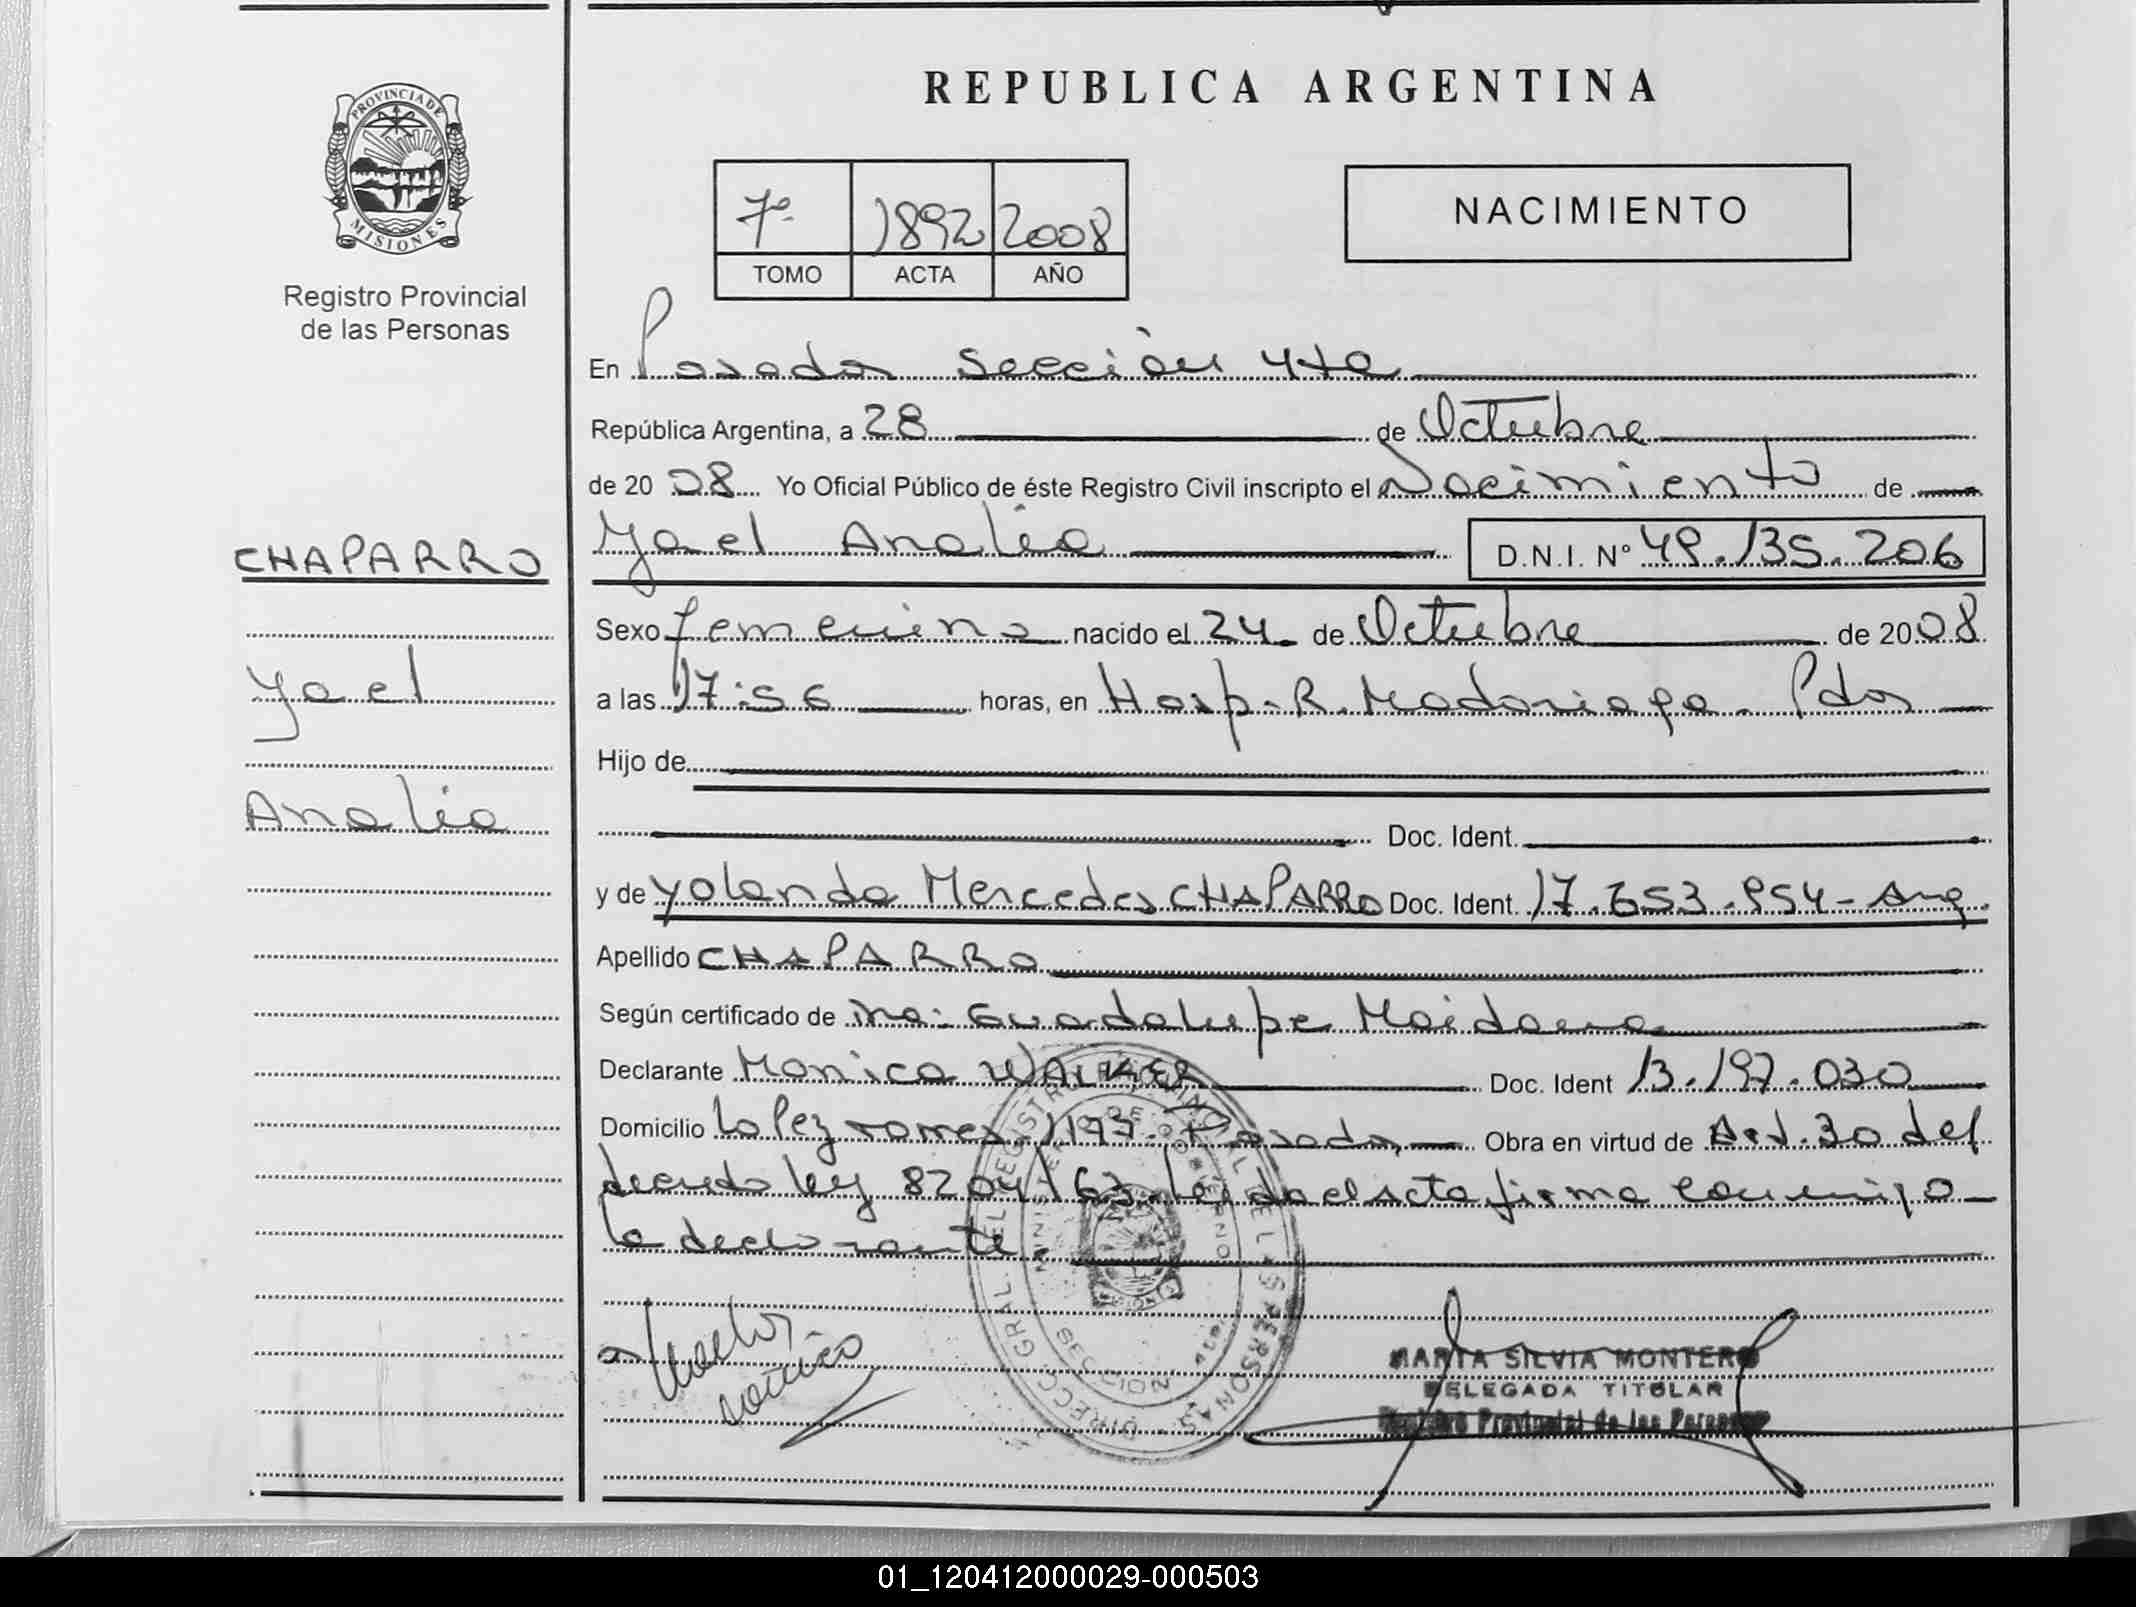 REPUBLICA ARGENTINA
PROVINCIA DE
MISIONES
Registro Provincial
de las Personas
7º 1892 2008
TOMO ACTA AÑO
NACIMIENTO
En Posadas Sección 4ta
República Argentina, a 28 de Octubre
de 20 08 Yo Oficial Público de éste Registro Civil inscripto el Nacimiento de
CHAPARRO
Yael
Analia
Yael Analia D.N.I. Nº 49.135.206
Sexo femenino nacido el 24 de Octubre de 2008
a las 17:56 horas, en Hosp. R. Madariaga. Pdas
Hijo de
Doc. Ident.
y de Yolanda Mercedes CHAPARRO Doc. Ident. 17.653.954 - Arg.
Apellido CHAPARRO
Según certificado de Guadalupe Maidana
Declarante Monica WALKER Doc. Ident 13.197.030
Domicilio Lopez torres 1197. Posadas Obra en virtud de Art. 30 del
decreto ley 8204/63. Leída el Acta firma conmigo
la declarante
MARTA SILVIA MONTERO
DELEGADA TITULAR
Registro Provincial de las Personas
01_120412000029-000503